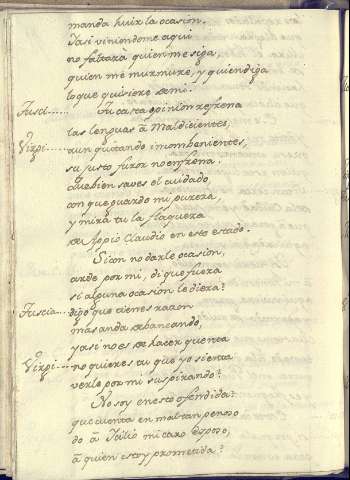 manda huir la ocasion.
Iasi viniendome aqui
no faltara quien me siga,
quien me murmure, y quien diga
lo que quisiere de mi.
Fusci...... Tu casta opinion refrena
las lenguas â Maldicientes,
Virgi...... aun quitando incombenientes,
su justo furor no enfrena.
Que bien saves el cuidado
con que guardo mi pureza,
y mira tu la flaqueza
de Appio Claudio en este estado.
Si con no darle ocasion,
arde por mi, di que fuera
si alguna ocasion le diera?
Fuscia... digo que tienes razon
mas anda
y asi no es de hacer quenta
Virgi... no quieres tu que yo sienta
verle por mi suspirando?
No soy en esto ofendida?
que cuenta en mal tan penso
do â Icilio mi caro Esposo,
â quien estoy prometida?